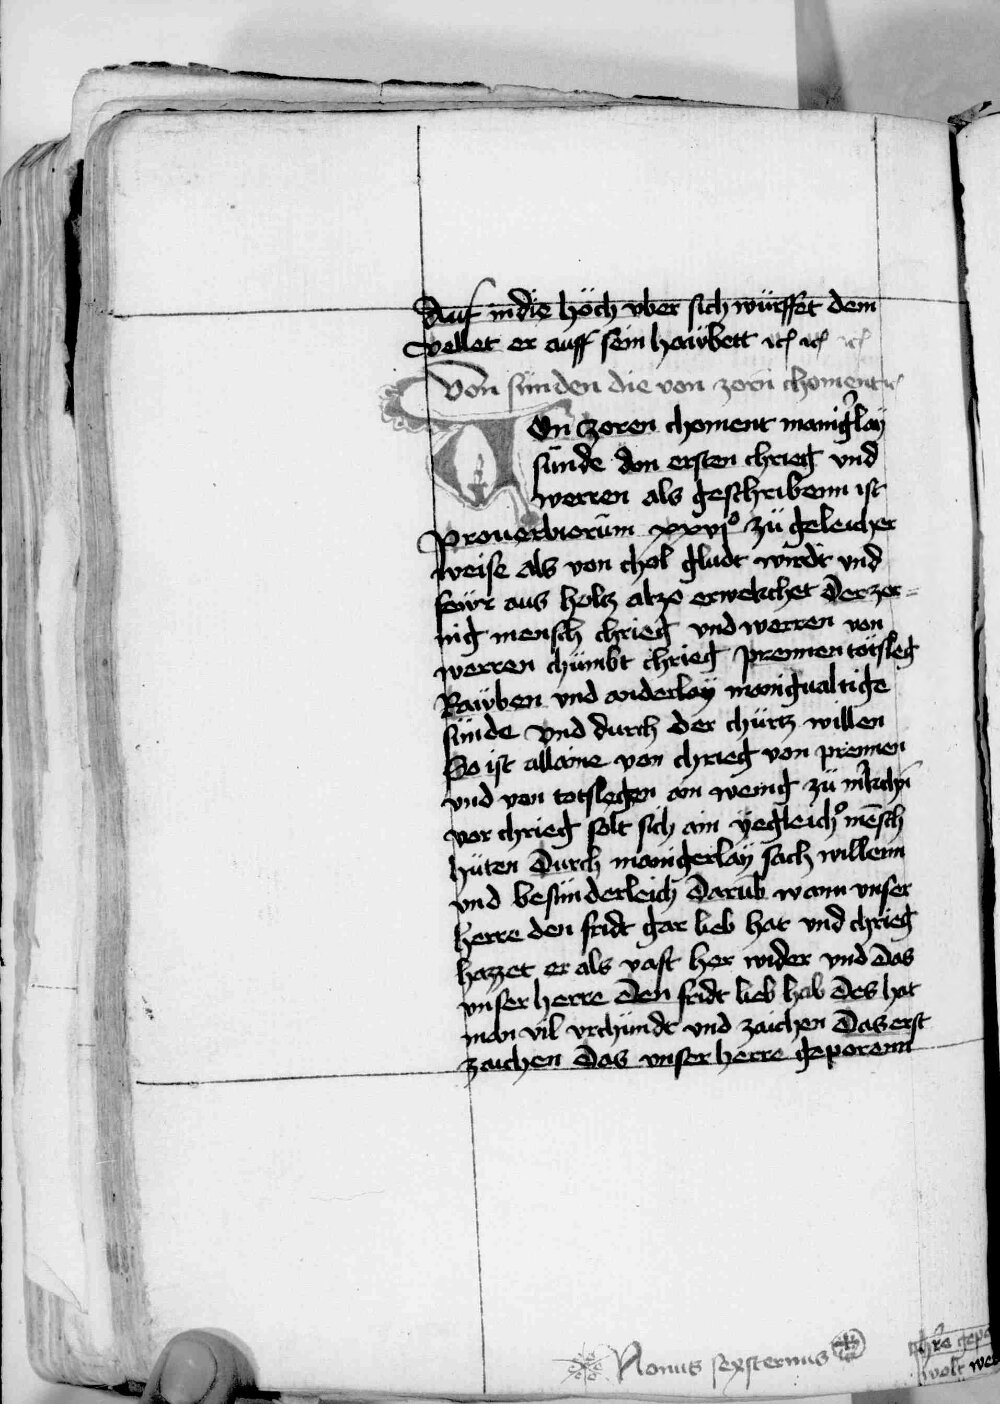 Auf in die höch vber sich würffet dem
vellet er auff sein hawbett ꝛc̃ ꝛc̃ ꝛc̃
Von sünden die von zorn choment ꝛc̃
Von zoren choment manig̉lay
sünde don ersten chrieg vnd
werren als geschribenn ist
Prouerbiorum xxvjº zü geleicher
weise als von chol gludt wirdt vnd
fewr aus holtz alzo erwekchet Der zor=
nig mensch chrieg vnd werren von
werren chümbt chrieg prennen totsleg
Rawben vnd anderlay manigualtige
sünde Vnd durch der chürtz willen
So ist allaine von chrieg von prennen
vnd von totslegen ain wenig zü m̉kchñ
vor chrieg solt sich ain yegleich̉ mẽsch
hüten Durch manigerlay sach willenn
vnd besünderleich Darub̃ wann vnser
herre den fridt gar lieb hat vnd chrieg
hazzet er als vast her wider vnd Das
vnser herre Den fridt lieb hab Des hat
man vil vrchündt vnd zaichen Das erst
zaichen Das vnser herre geporenn
Nonus sexsternus
wolt